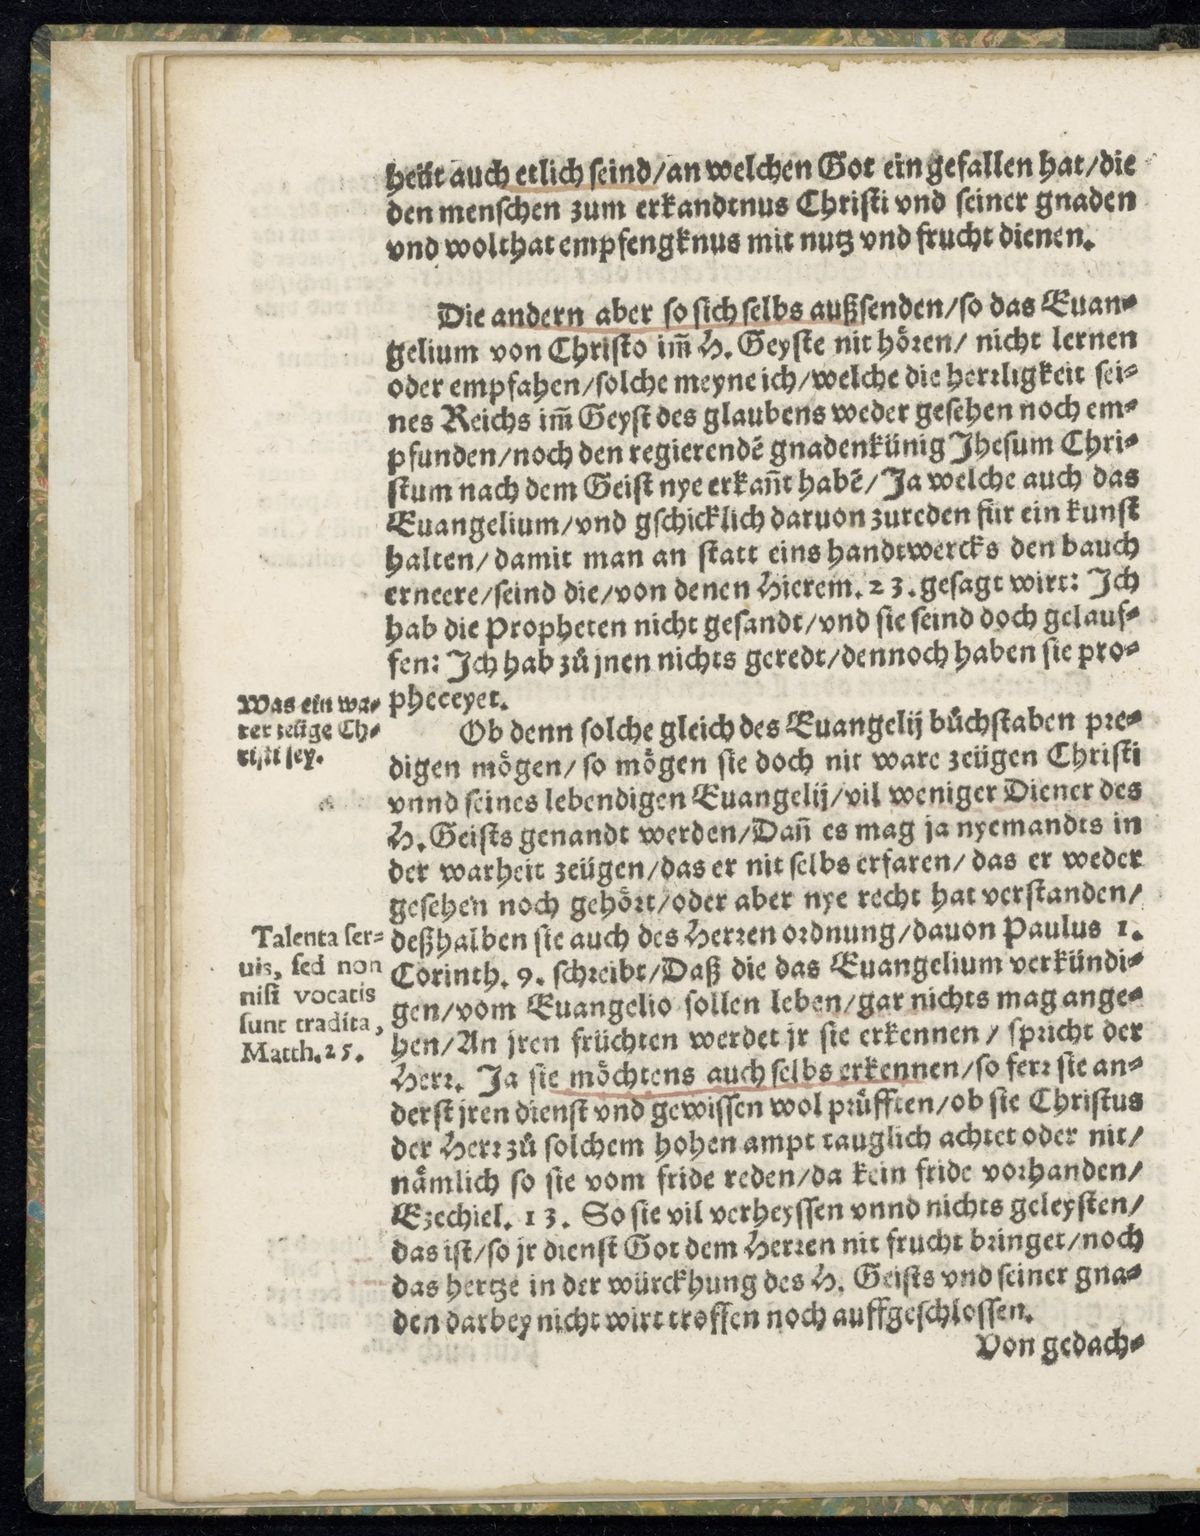 heüt auch etlich seind/an welchen Got ein gefallen hat/die
den menschen zum erkandtnus Christi vnd seiner gnaden
vnd wolthat empfengknus mit nutz vnd frucht dienen.
Die andern aber so sich selbs außsenden/so das Euan⸗
gelium von Christo im̃ H. Geyste nit hören/ nicht lernen
oder empfahen/solche meyne ich/welche die herrligkeit sei⸗
nes Reichs im̃ Geyst des glaubens weder gesehen noch em⸗
pfunden/noch den regierendẽ gnadenkünig Jhesum Chri⸗
stum nach dem Geist nye erkañt habẽ/Ja welche auch das
Euangelium/vnd gschicklich daruon zureden für ein kunst
halten/damit man an statt eins handtwercks den bauch
erneere/seind die/von denen Hierem. 23. gesagt wirt: Ich
hab die Propheten nicht gesandt/vnd sie seind doch gelauf⸗
fen: Ich hab zů jnen nichts geredt/dennoch haben sie pro⸗
pheceyet.
Was ein wa⸗
rer zeüge Ch⸗
risti sey.
Ob denn solche gleich des Euangelij bůchstaben pre⸗
digen mögen/so mögen sie doch nit ware zeügen Christi
vnnd seines lebendigen Euangelij/vil weniger Diener des
H. Geists genandt werden/Dañ es mag ja nyemandts in
der warheit zeügen/das er nit selbs erfaren/ das er weder
gesehen noch gehört/oder aber nye recht hat verstanden/
deßhalben sie auch des Herren ordnung/dauon Paulus 1.
Corinth. 9. schreibt/Daß die das Euangelium verkündi⸗
gen/vom Euangelio sollen leben/gar nichts mag ange⸗
hen/An jren früchten werdet jr sie erkennen / spricht der
Herr. Ja sie möchtens auch selbs erkennen/so ferr sie an⸗
derst jren dienst vnd gewissen wol prüfften/ob sie Christus
der Herr zů solchem hohen ampt tauglich achtet oder nit/
nämlich so sie vom fride reden/da kein fride vorhanden/
Ezechiel. 13. So sie vil verheyssen vnnd nichts geleysten/
das ist/so jr dienst Got dem Herren nit frucht bringet/noch
das hertze in der würckhung des H. Geists vnd seiner gna⸗
den darbey nicht wirt troffen noch auffgeschlossen.
Talenta ser⸗
uis, sed non
nisi vocatis
sunt tradita,
Matth. 25.
Von gedach⸗